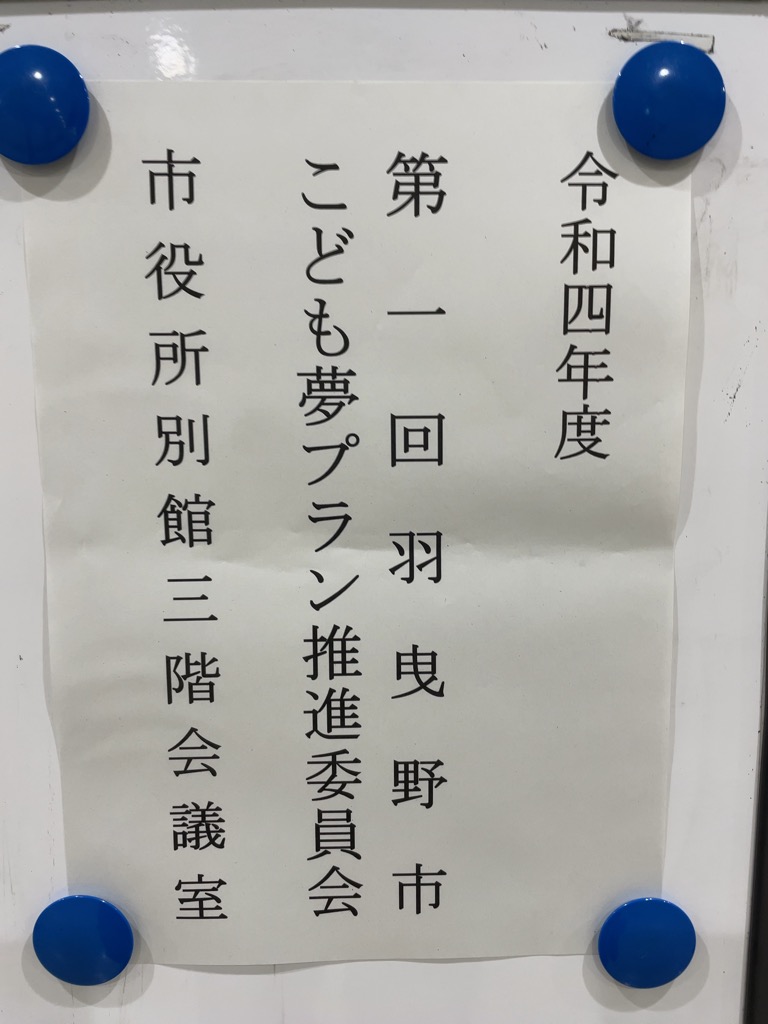 令和四年度
第一回羽曳野市
こども夢プラン推進委員会
市役所別館三階会議室